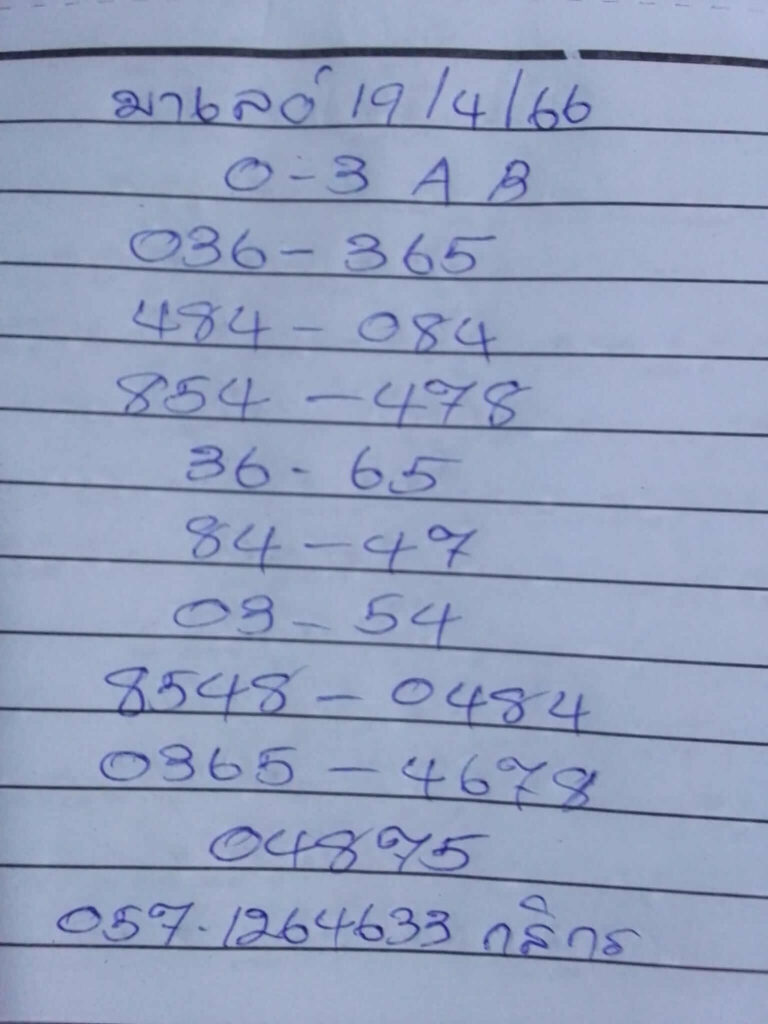 มาเลย์ 19/4/66
0-3 A B
036-365
484-084
854-478
36-65
84-47
03-54
8548-0484
0365-4678
04875
057.1264633 กสิกร